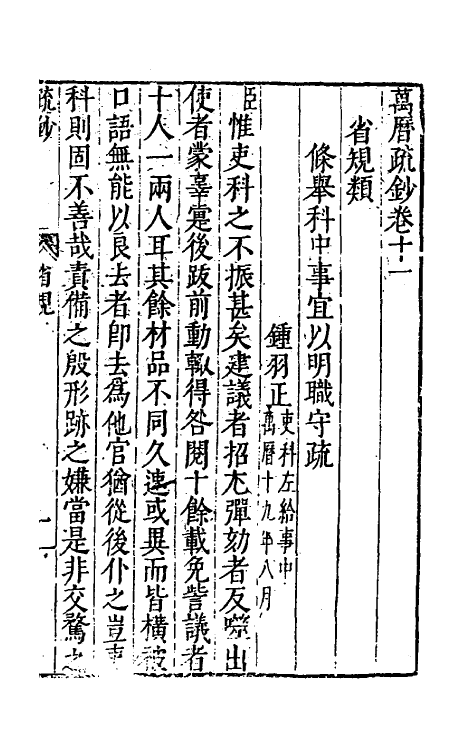 萬曆疏鈔卷十一
省規類
條舉科中事宜以明職守疏
鍾羽正吏科左給事中
萬曆十九年八月
臣惟吏科之不振甚矣建議者招尤彈劾者反噬出
使者蒙辜寔後跋前動輒得咎閱十餘載免訾議者
十人一兩人耳其餘材品不同久速或異而皆橫被
口語無能以良去者卽去爲他官猶從後仆之豈吏
科則固不善哉責備之殷形跡之嫌當是非交騖之
疏鈔 省規 一